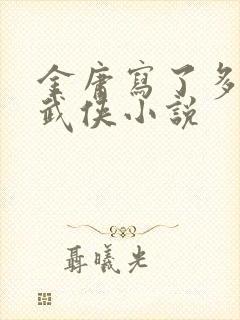 金庸寫了多
武俠小說
聶曦光